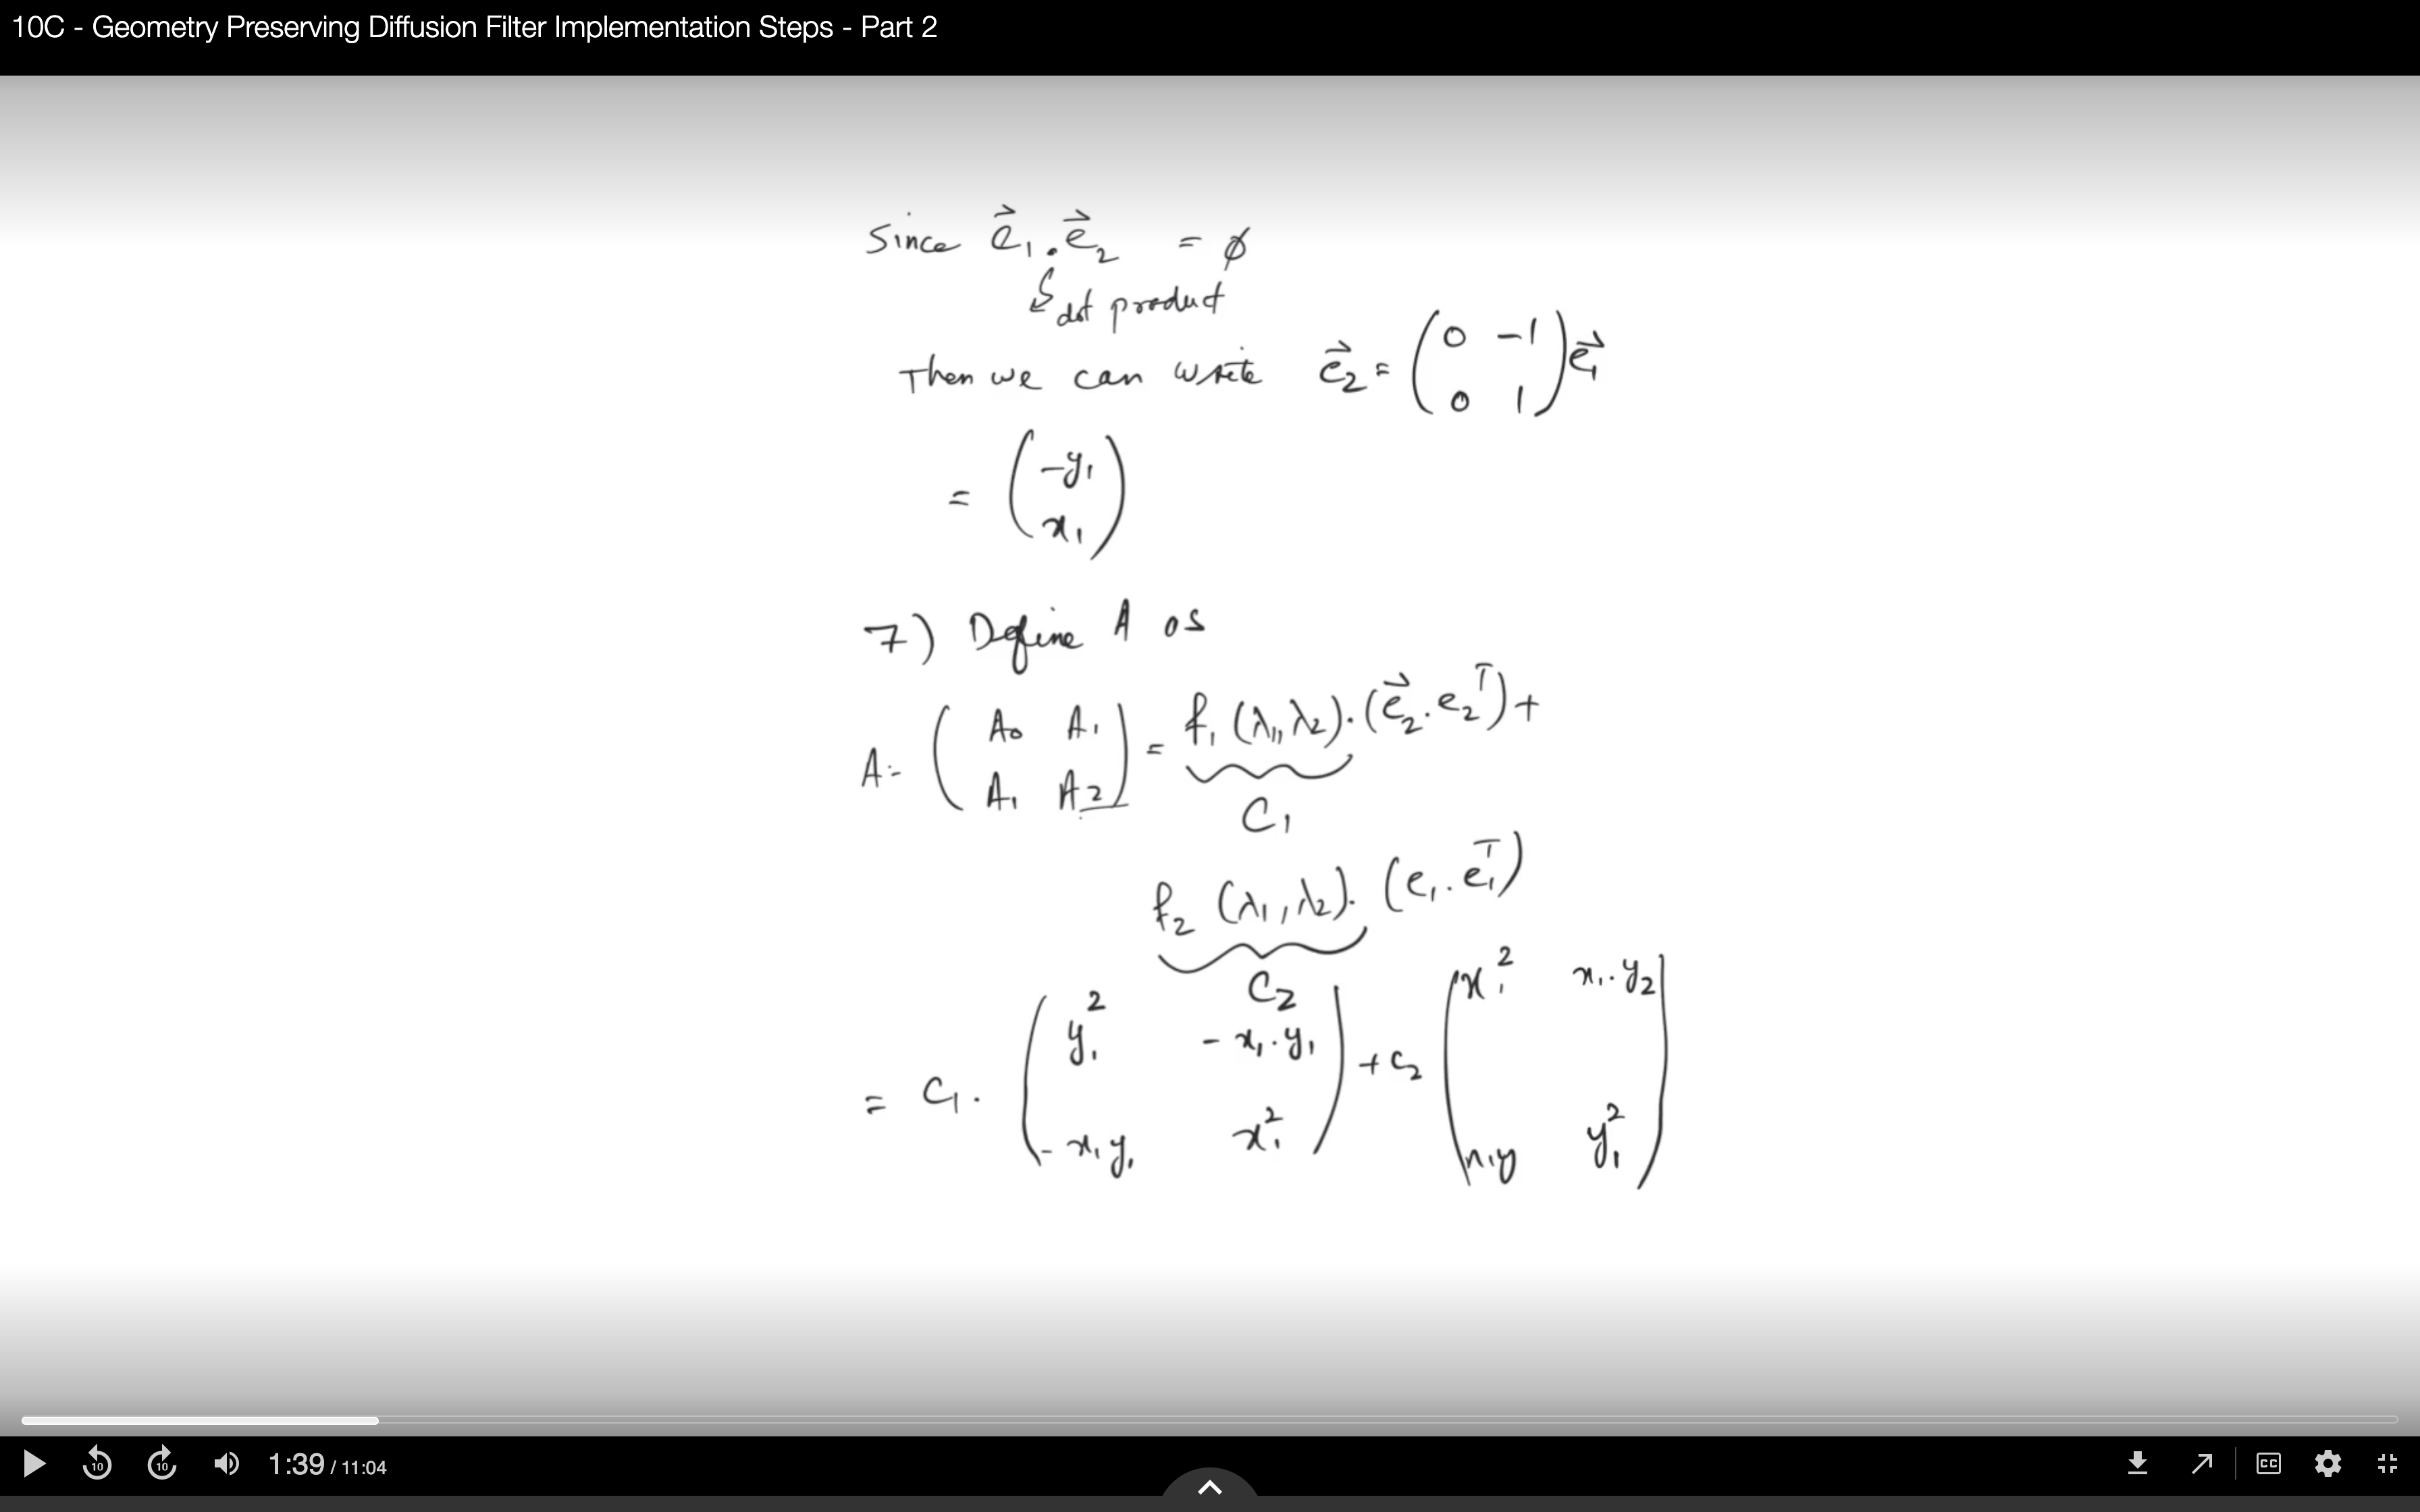 10C - Geometry Preserving Diffusion Filter Implementation Steps - Part 2
Since e⃗₁ . e⃗₂ = ϕ
↳ dot product
Then we can write e⃗₂ = ( 0 -1 ; 0 1 ) e⃗₁
= ( -y₁ ; x₁ )
7) Define A as
A = ( A₀ A₁ ; A₁ A₂ ) = f₁ (λ₁, λ₂) . (e⃗₂ . e₂ᵀ) +
C₁
f₂ (λ₁, λ₂) . (e₁ . e₁ᵀ)
C₂
= C₁ . ( y₁² - x₁ . y₁ ; - x₁ y₁ x₁² ) + C₂ ( x₁² x₁ . y₂ ; x₁ y y₁² )
10 10 1:39 / 11:04 CC